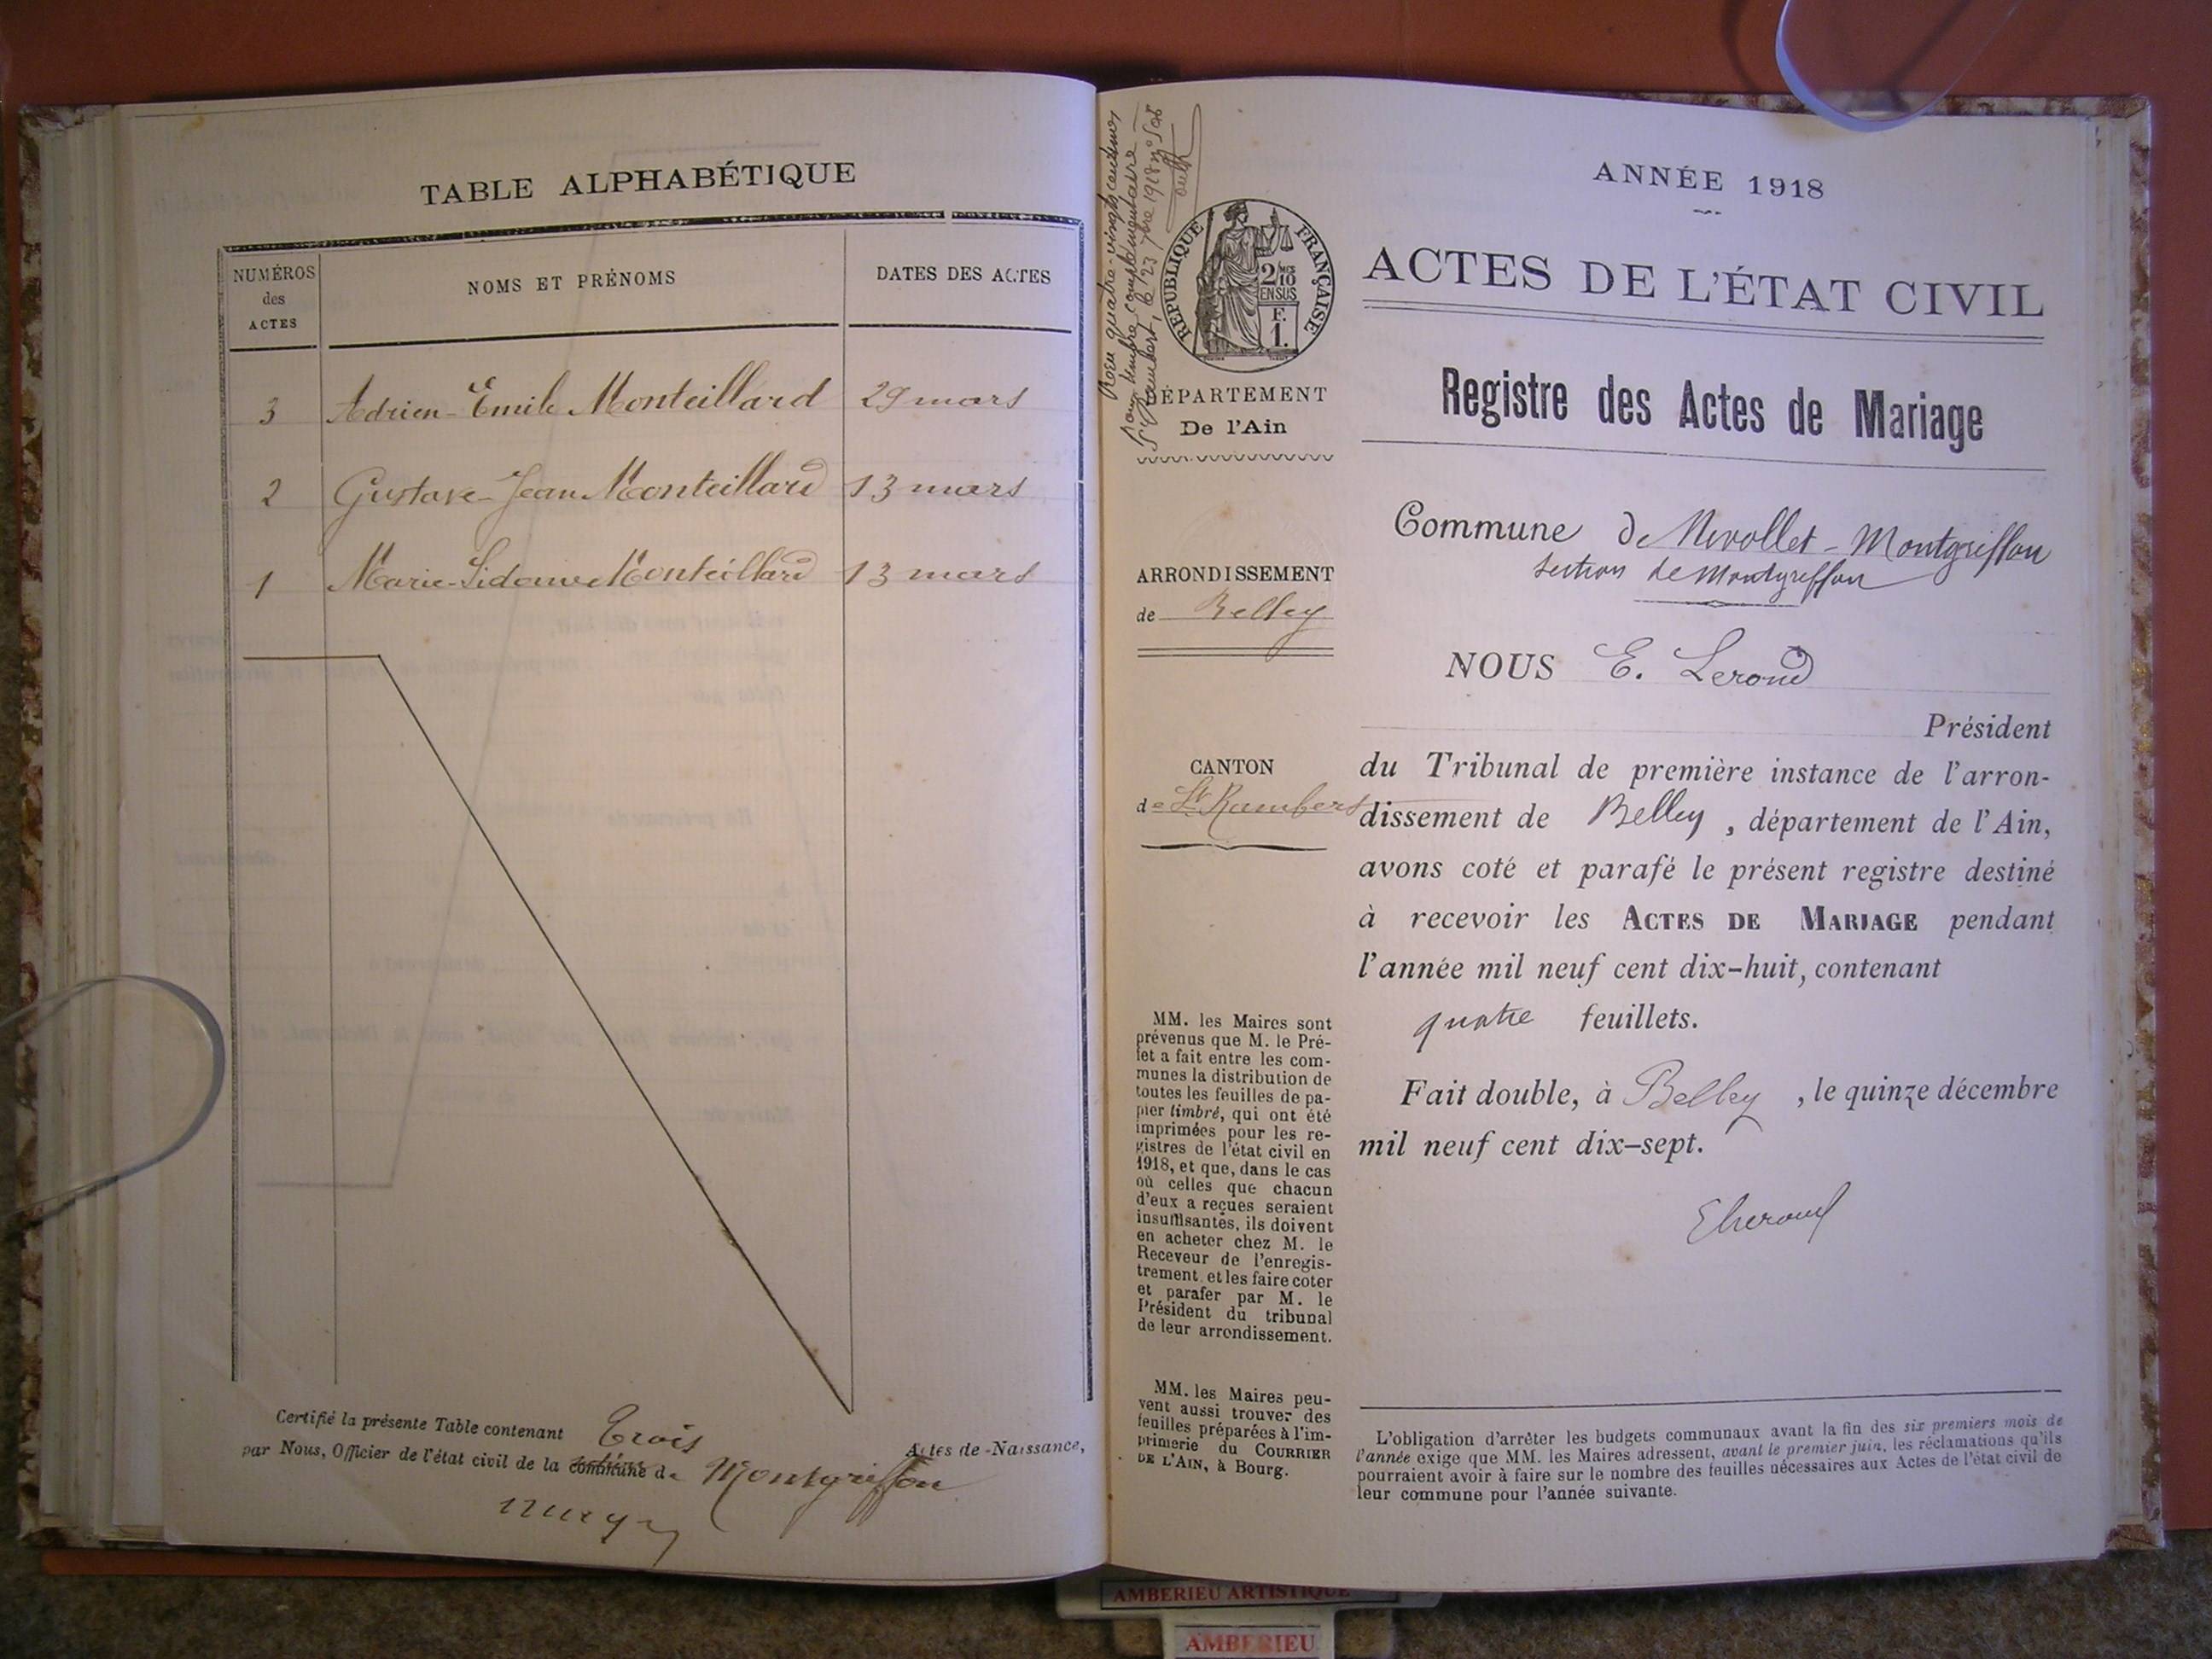 TABLE ALPHABÉTIQUE
NUMÉROS
des
ACTES
NOMS ET PRÉNOMS
DATES DES ACTES
3 Adrien-Emile Monteillard 29 mars
2 Gustave-Jean Monteillard 13 mars
1 Marie-Sidonie Monteillard 13 mars
Certifié la présente Table contenant Trois Actes de Naissance,
par Nous, Officier de l'état civil de la commune de Montgriffon
Reçu quatre-vingts centimes
pour timbre complémentaire
St Rambert, le 23 7bre 1918
RÉPUBLIQUE FRANÇAISE
2/10
EN SUS
F.
1.
DÉPARTEMENT
De l'Ain
ARRONDISSEMENT
de Belley
CANTON
de St Rambert
MM. les Maires sont
prévenus que M. le Pré-
fet a fait entre les com-
munes la distribution de
toutes les feuilles de pa-
pier timbré, qui ont été
imprimées pour les re-
gistres de l'état civil en
1918, et que, dans le cas
où celles que chacun
d'eux a reçues seraient
insuffisantes, ils doivent
en acheter chez M. le
Receveur de l'enregis-
trement, et les faire coter
et parafer par M. le
Président du tribunal
de leur arrondissement.
MM. les Maires peu-
vent aussi trouver des
feuilles préparées à l'im-
primerie du COURRIER
DE L'AIN, à Bourg.
ANNÉE 1918
ACTES DE L'ÉTAT CIVIL
Registre des Actes de Mariage
Commune de Nivollet-Montgriffon
section de Montgriffon
NOUS E. Lerond
Président
du Tribunal de première instance de l'arron-
dissement de Belley, département de l'Ain,
avons coté et parafé le présent registre destiné
à recevoir les ACTES DE MARIAGE pendant
l'année mil neuf cent dix-huit, contenant
quatre feuillets.
Fait double, à Belley, le quinze décembre
mil neuf cent dix-sept.
ELerond
L'obligation d'arrêter les budgets communaux avant la fin des six premiers mois de
l'année exige que MM. les Maires adressent, avant le premier juin, les réclamations qu'ils
pourraient avoir à faire sur le nombre des feuilles nécessaires aux Actes de l'état civil de
leur commune pour l'année suivante.
AMBERIEU ARTISTIQUE
AMBERIEU